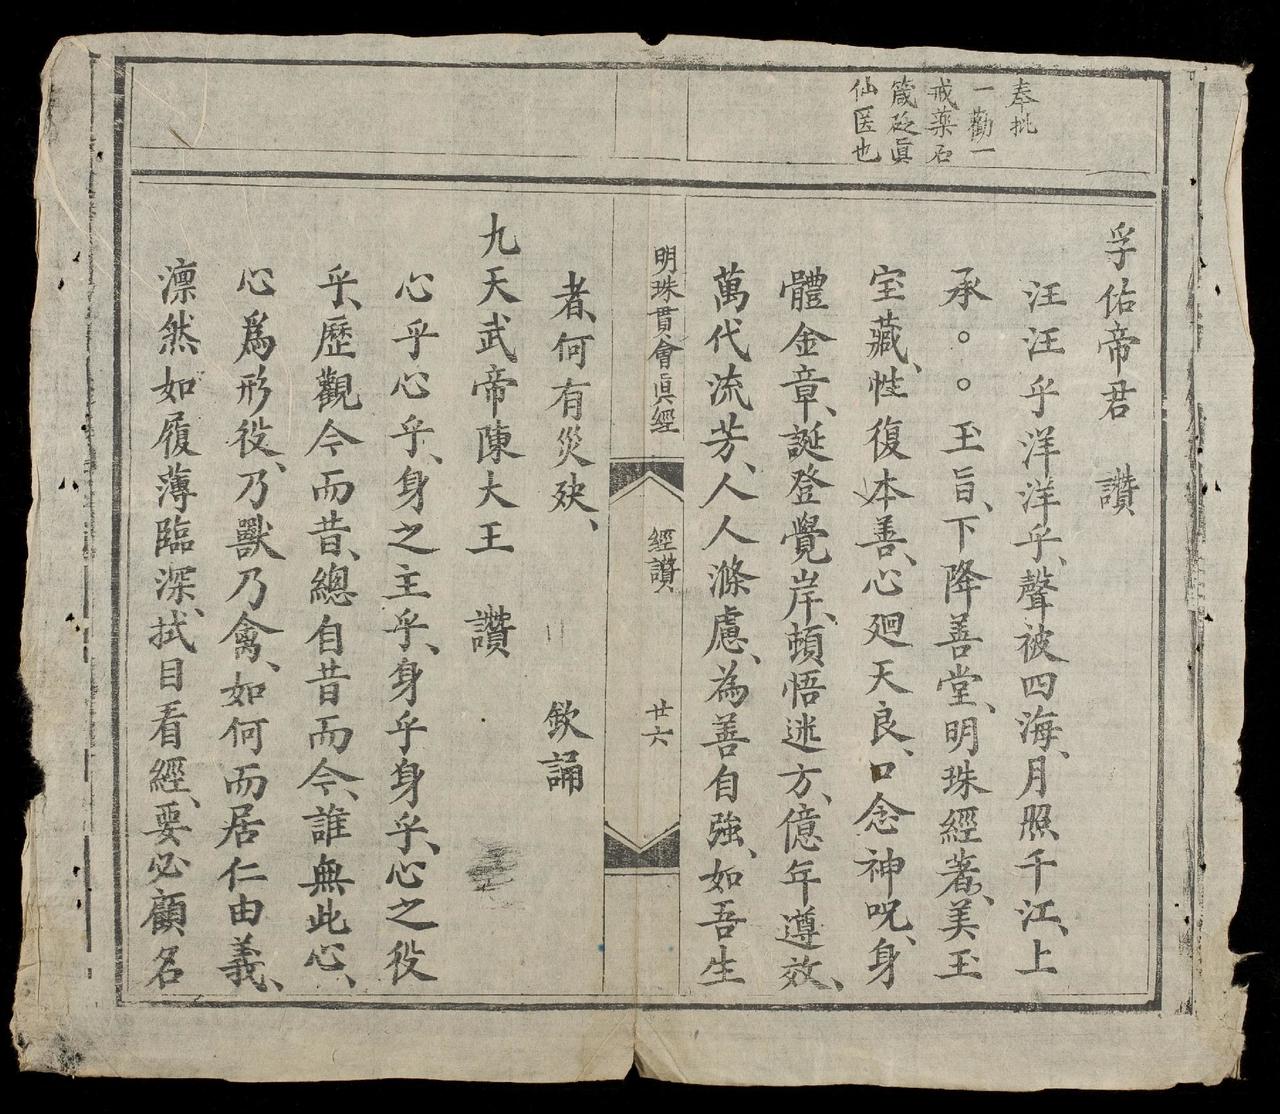 奉批
一勸一
戒藥石
箴砭眞
仙医也
孚佑帝君 讚
汪汪乎洋洋乎、聲被四海、月照千江、上
承。。玉旨、下降善堂、明珠經著、美玉
宝藏、性復本善、心廻天良、口念神呪、身
體金章、誕登覺岸、頓悟迷方、億年遵效、
萬代流芳、人人滌慮、為善自強、如吾生
明珠貫會眞經 經讚 廿六
者、何有災殃、 欽誦
九天武帝陳大王 讚
心乎心乎、身之主乎、身乎身乎、心之役
乎、歷觀今而昔、總自昔而今、誰無此心、
心爲形役、乃獸乃禽、如何而居仁由義、
凛然如履薄臨深、拭目看經、要必顧名